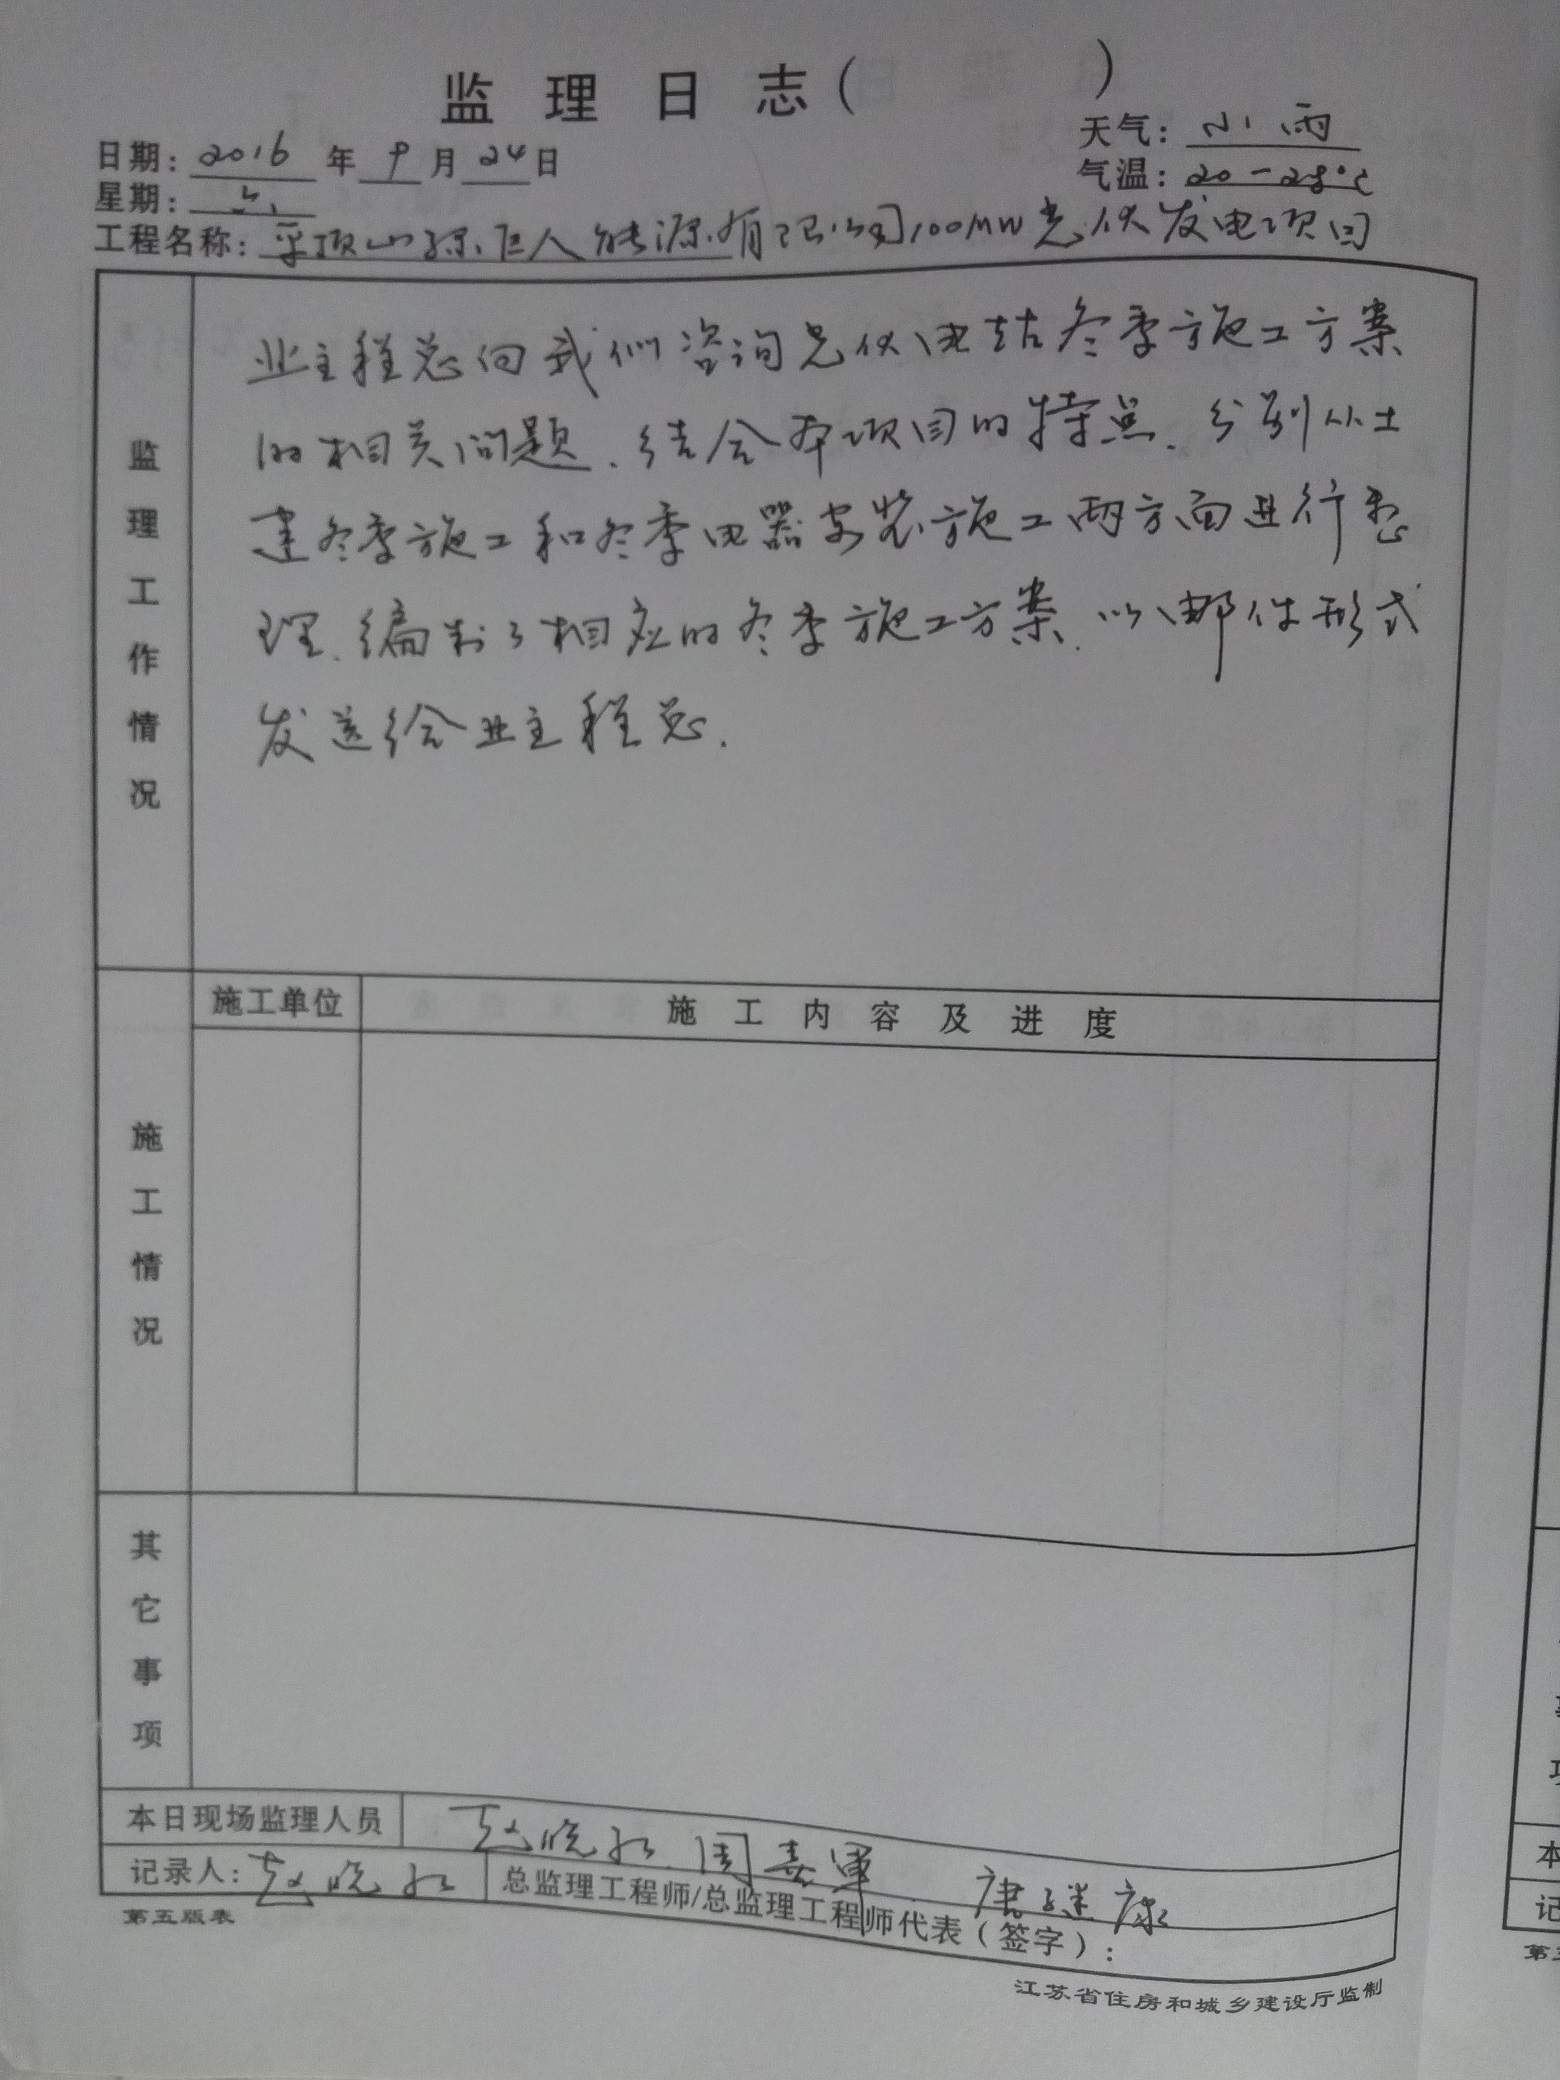 监理日志（　　　）
日期：2016年9月24日
天气：小雨
星期：六
气温：20-28℃
工程名称：平顶山绿巨人能源有限公司100MW光伏发电项目
监理工作情况
业主程总向我们咨询光伏电站冬季施工方案
的相关问题、结合本项目的特点、分别从土
建冬季施工和冬季电器安装施工两方面进行整
理、编制了相应的冬季施工方案、以邮件形式
发送给业主程总.
施工情况
施工单位
施工内容及进度
其它事项
本日现场监理人员
赵晓 周 军 唐继康
记录人：赵晓
总监理工程师/总监理工程师代表（签字）：
第五版表
江苏省住房和城乡建设厅监制
本
记